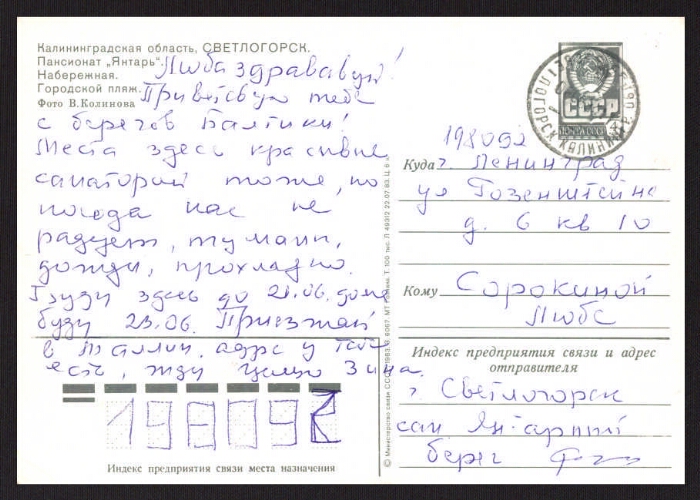 Калининградская область, СВЕТЛОГОРСК.
Пансионат „Янтарь".
Набережная.
Городской пляж.
Фото В. Колинова
Люба здравсвуй!
Приветсвую тебе
с берегов Балтики!
Места здесь красивые
санаторий тоже, но
погода нас не
радует, туманн,
дожди, прохладно.
Буду здесь до 21.06. дома
буду 23.06. Приезжай
в Таллин, адрес у тебя
есть, жду целую Зина.
СССР
ПОЧТА СССР
198092
Куда г. Ленинград
ул Гозенштейна
д. 6 кв 10
Кому Сорокиной
Любе
Индекс предприятия связи и адрес
отправителя
г. Светлогорск
сан Янтарный
берег
198092
Индекс предприятия связи места назначения
© Министерство связи СССР. 1983.